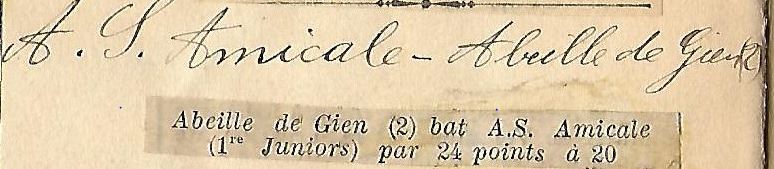 A. S. Amicale – Abeille de Gien (2)
Abeille de Gien (2) bat A.S. Amicale
(1re Juniors) par 24 points à 20